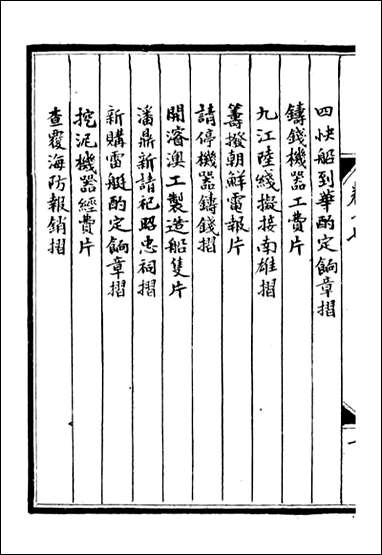 四快船到華酌定餉章摺
鑄錢機器工費片
九江陸綫擬接南雄摺
籌撥朝鮮電報片
請停機器鑄錢摺
開濬澳工製造船隻片
潘鼎新請祀昭忠祠摺
新購雷艇酌定餉章摺
挖泥機器經費片
查覆海防報銷摺